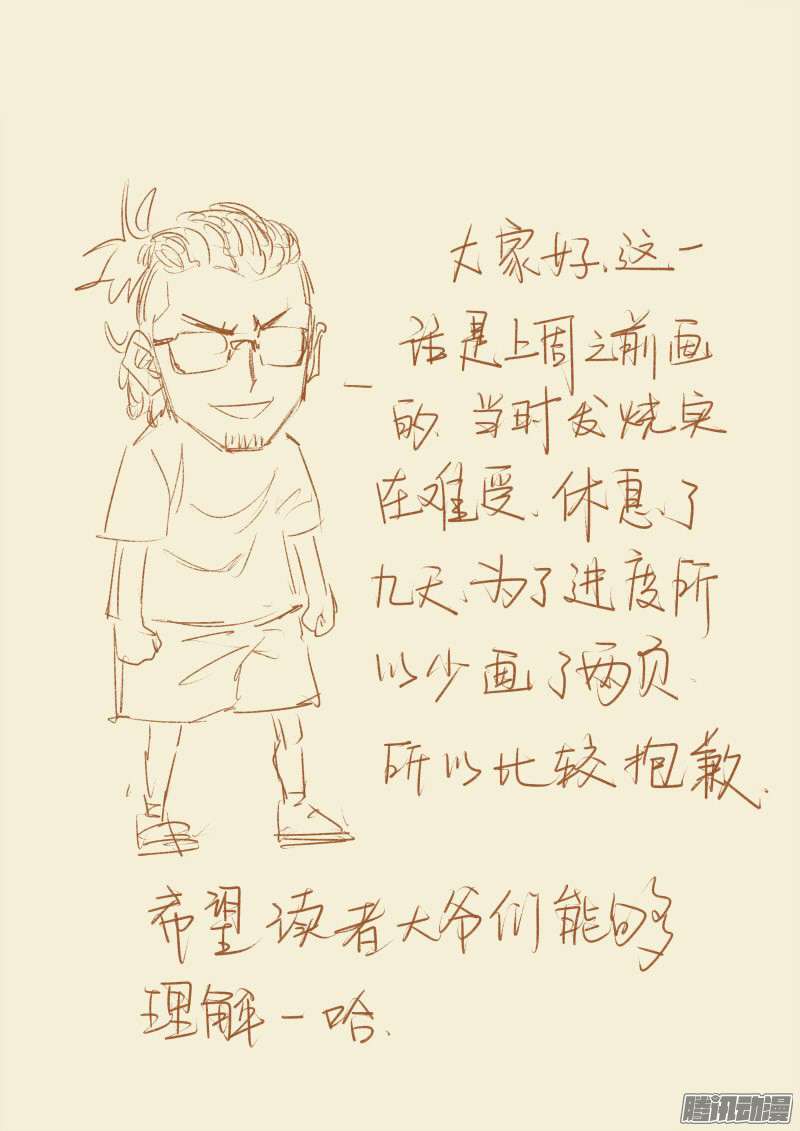 大家好、这一
话是上周之前画
的、当时发烧实
在难受、休息了
九天、为了进度所
以少画了两页.
所以比较抱歉.
希望读者大爷们能够
理解一哈.
腾讯动漫